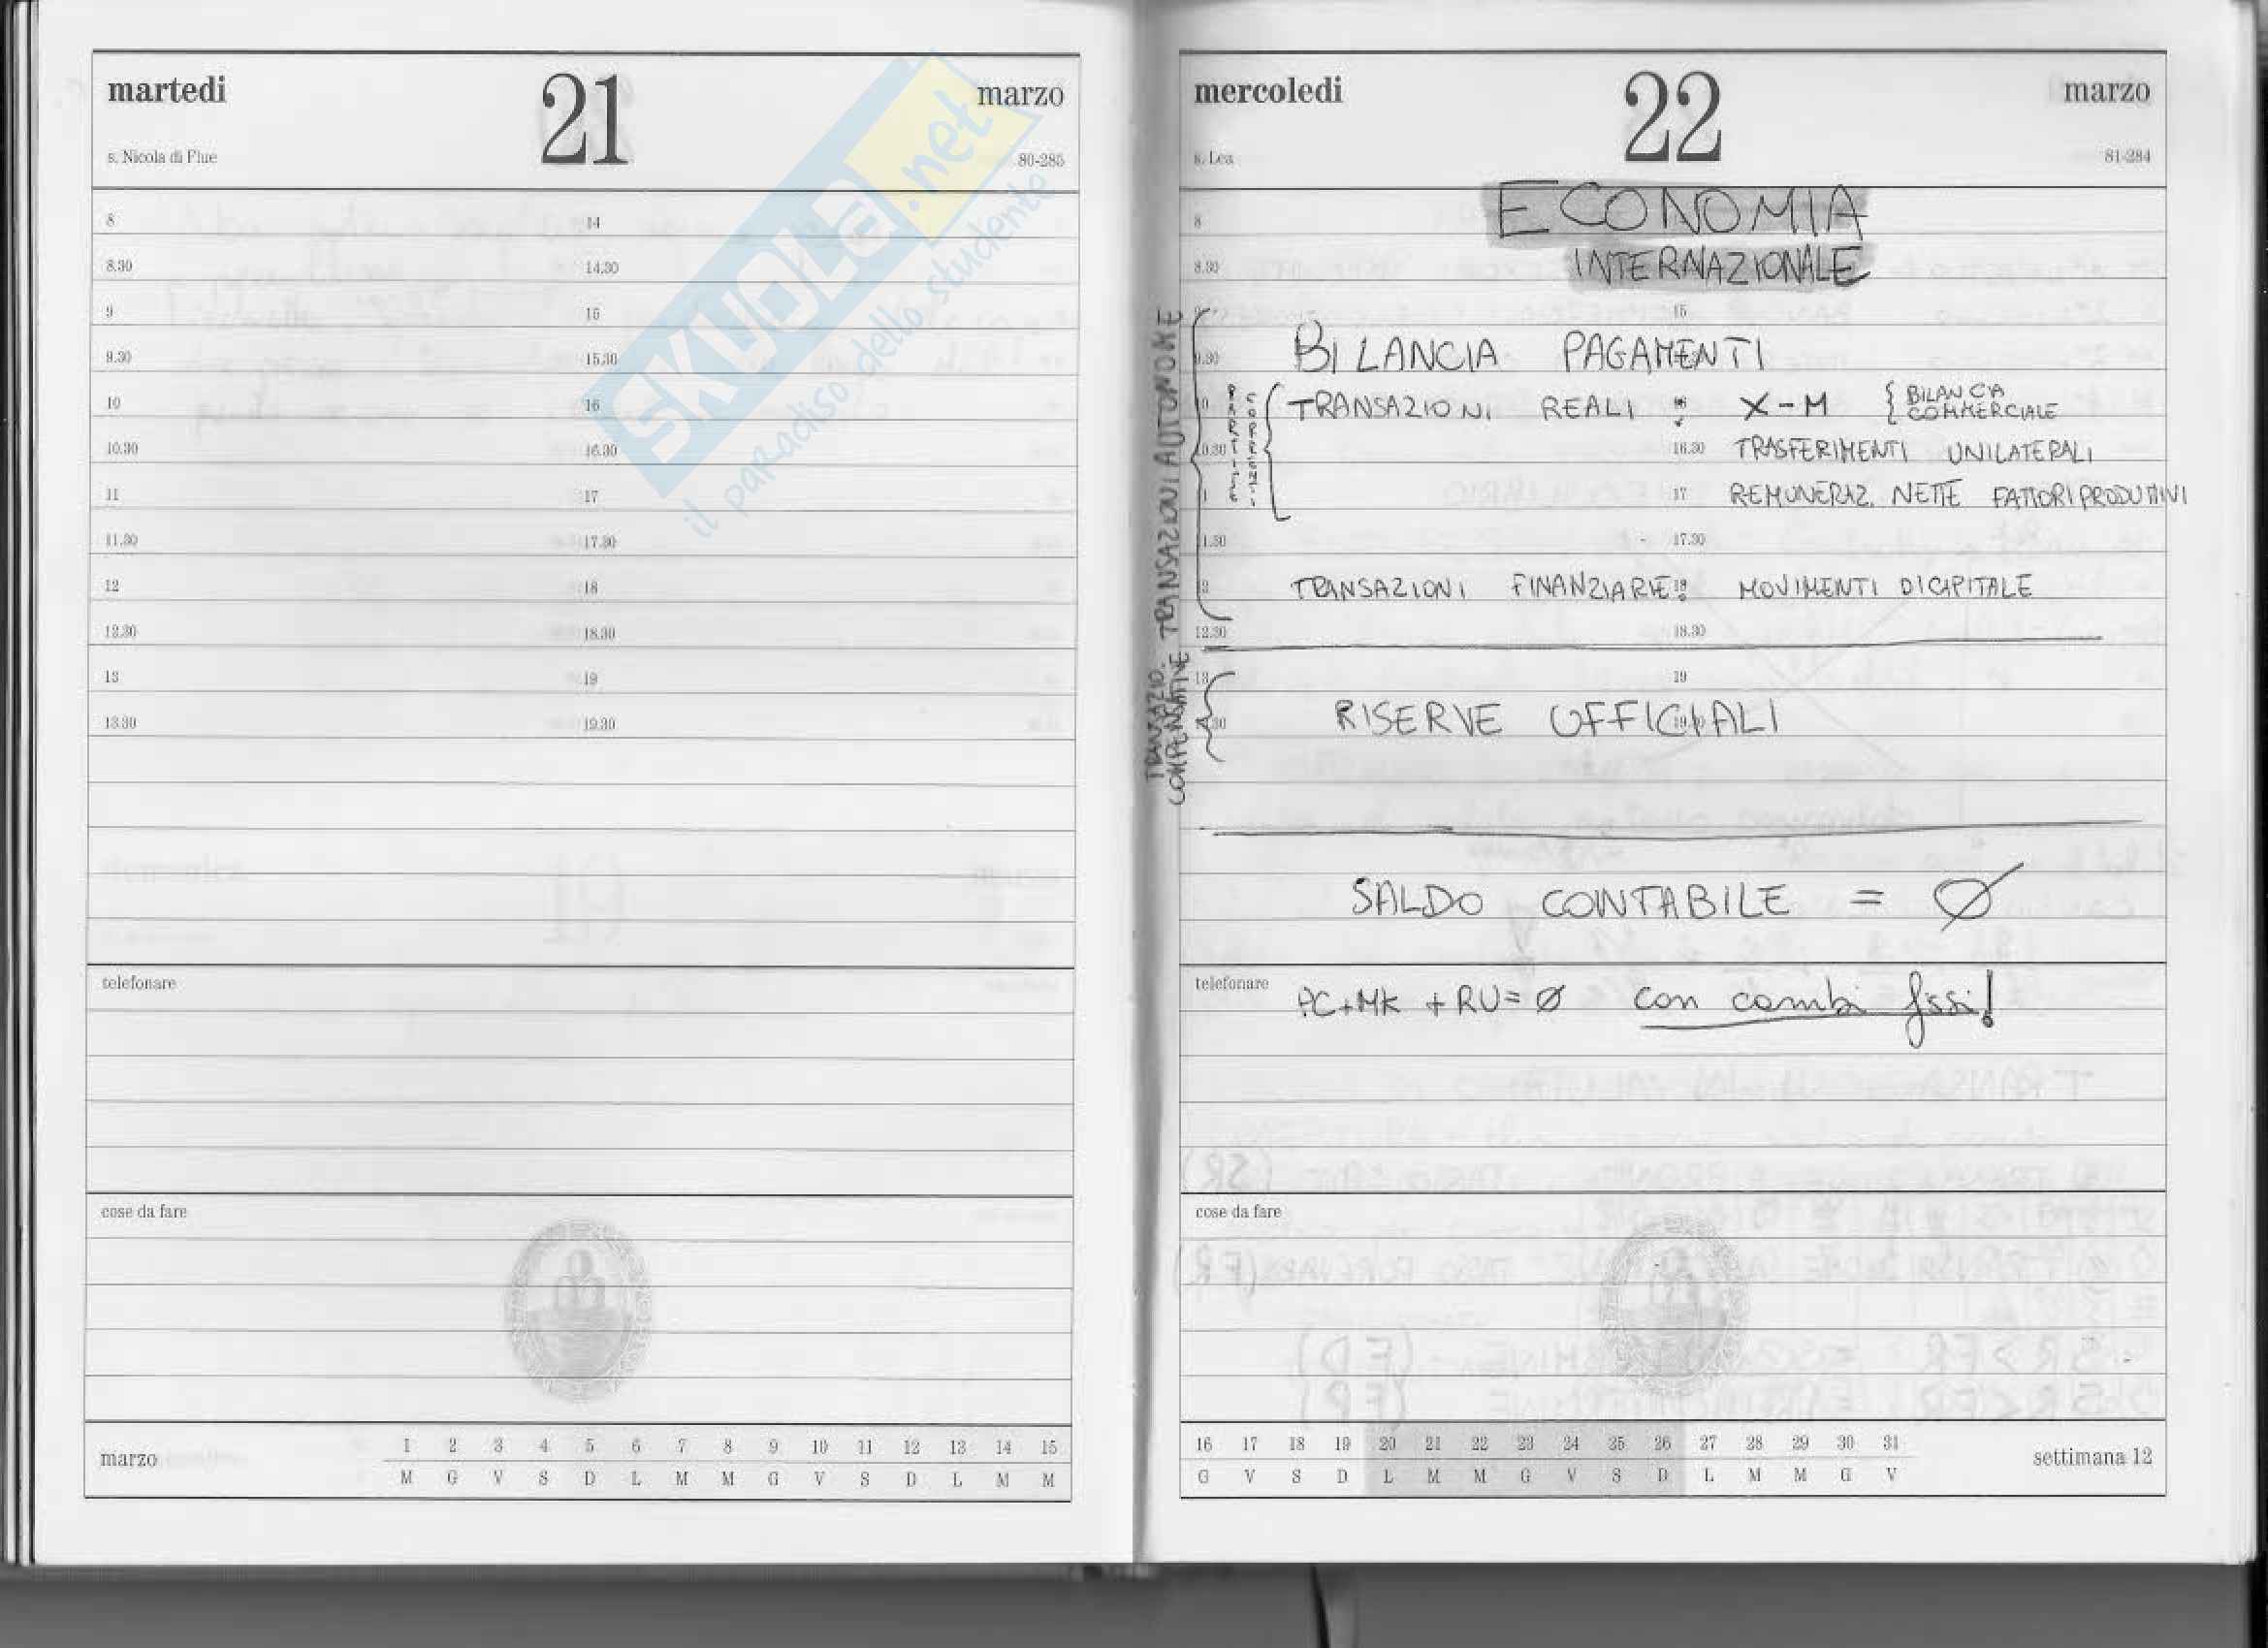 martedi 21 marzo
s. Nicola di Flue 80-285
8 14
8.30 14.30
9 15
9.30 15.30
10 16
10.30 16.30
11 17
11.30 17.30
12 18
12.30 18.30
13 19
13.30 19.30
telefonare
cose da fare
marzo 1 2 3 4 5 6 7 8 9 10 11 12 13 14 15
M G V S D L M M G V S D L M M
SKUOLA.net
il paradiso dello studente
mercoledi 22 marzo
s. Lea 81-284
8 ECONOMIA
8.30 INTERNAZIONALE
15
9.30 BILANCIA PAGAMENTI
TRANSAZIONI AUTONOME
PARTITE CORRENTI
10 TRANSAZIONI REALI : X-M { BILANCIA COMMERCIALE
10.30 16.30 TRASFERIMENTI UNILATERALI
17 REMUNERAZ. NETTE FATTORI PRODUTTIVI
11.30 17.30
TRANSAZIONI FINANZIARIE: MOVIMENTI DI CAPITALE
12.30 18.30
13 19
TRANSAZIO. COMPENSATIVE
RISERVE UFFICIALI
SALDO CONTABILE = Ø
telefonare PC+MK + RU = Ø con cambi fissi!
cose da fare
16 17 18 19 20 21 22 23 24 25 26 27 28 29 30 31 settimana 12
G V S D L M M G V S D L M M G V